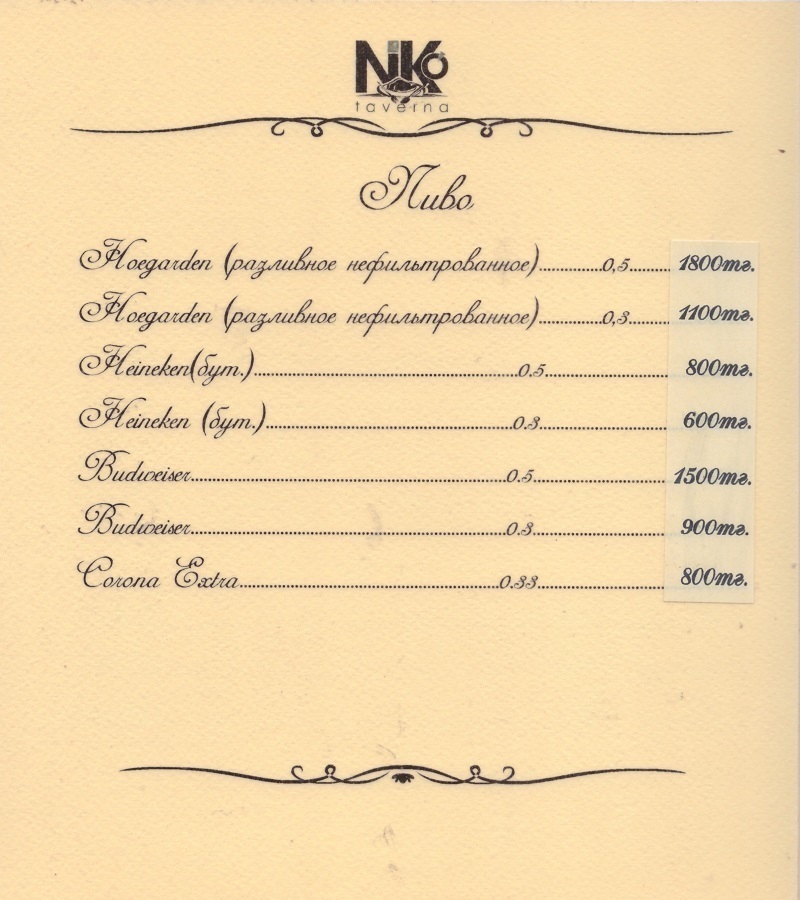 NiKo
taverna
Пиво
Hoegarden (разливное нефильтрованное).......................0,5............... 1800тг.
Hoegarden (разливное нефильтрованное)......................0,3............... 1100тг.
Heineken(бут.)...............................................................0.5............... 800тг.
Heineken (бут.)............................................................0.3............... 600тг.
Budweiser....................................................................0.5............... 1500тг.
Budweiser....................................................................0.3............... 900тг.
Corona Extra................................................................0.33............... 800тг.